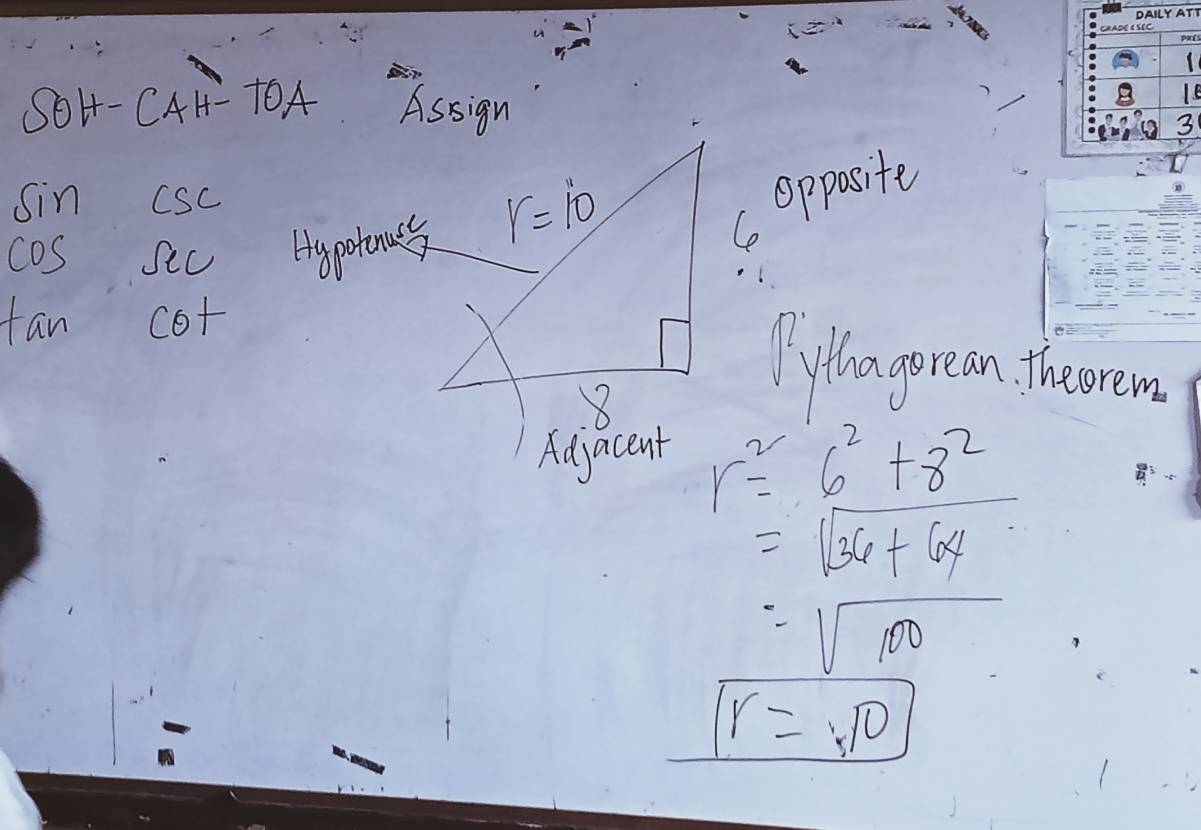 SOH-CAH-TOA Assign
sin csc
cos sec
tan cot
Hypotenuse
r = 10
6 opposite
8
Adjacent
Pythagorean theorem
r² = 6² + 8²
= √36 + 64
= √100
r = 10
DAILY ATT
GRADE & SEC
PRES